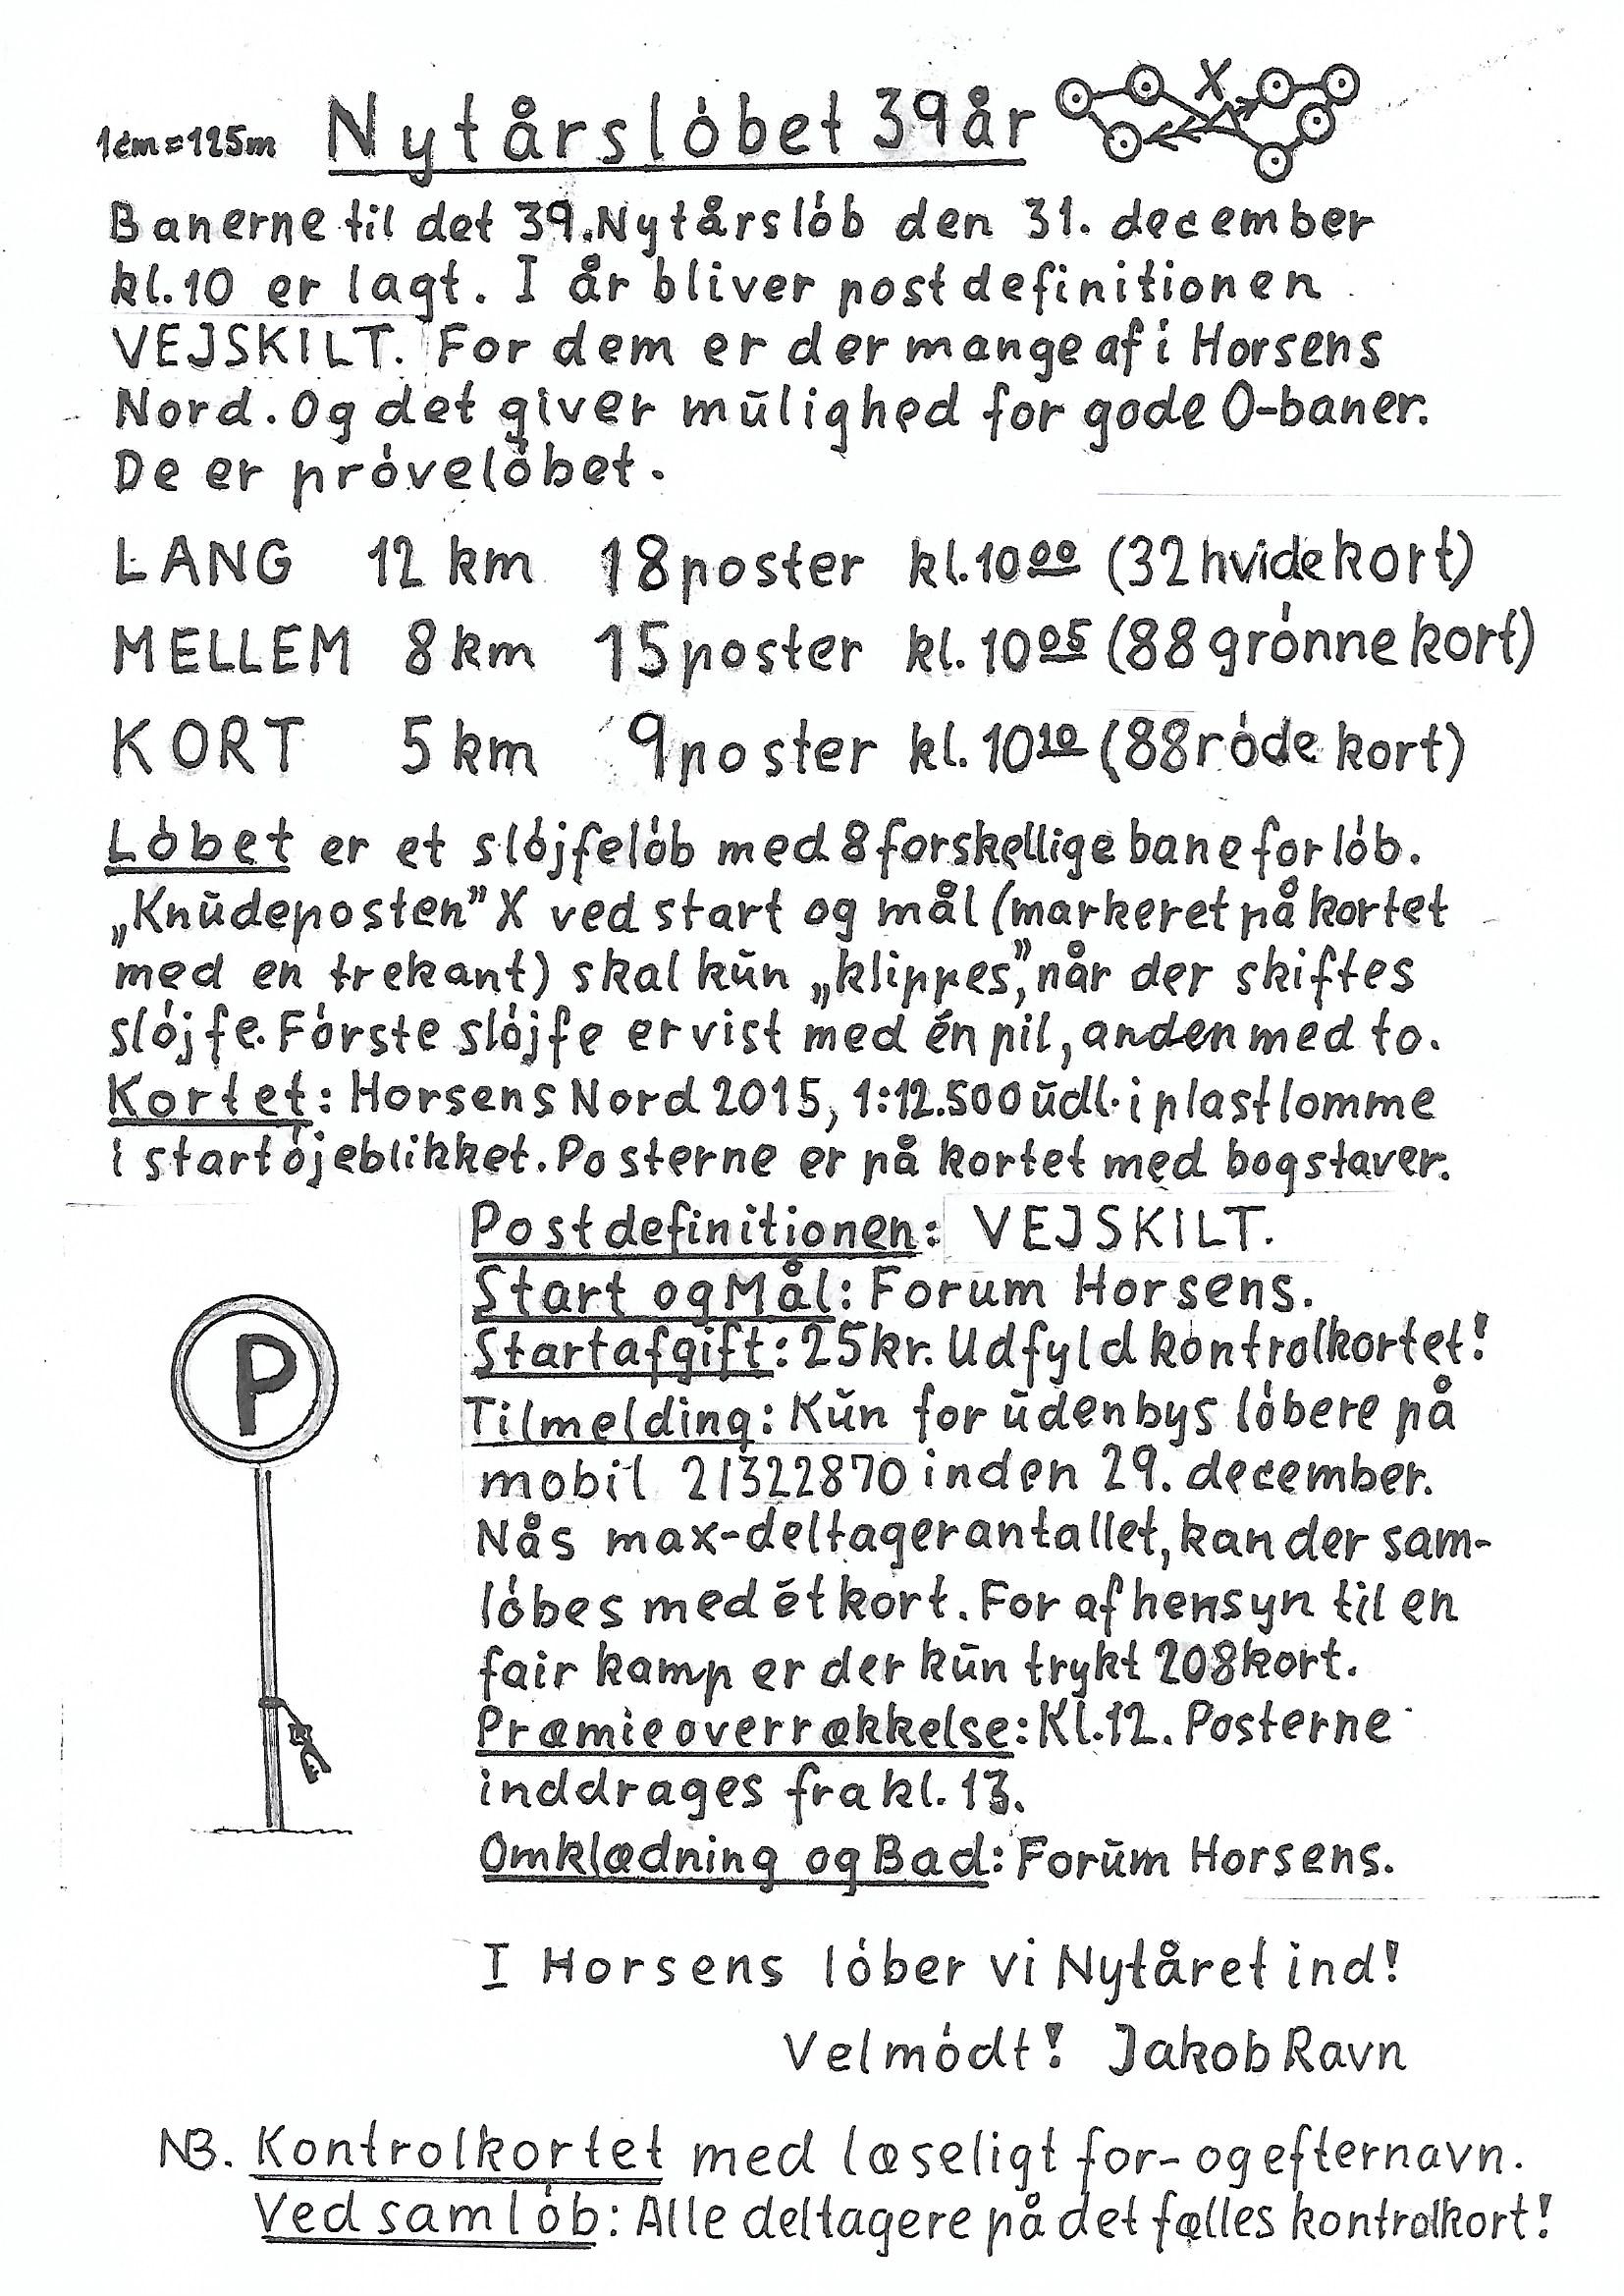 1cm=125m Nytårsløbet 39år X
Banerne til det 39. Nytårsløb den 31. december
kl. 10 er lagt. I år bliver postdefinitionen
VEJSKILT. For dem er der mange af i Horsens
Nord. Og det giver mulighed for gode O-baner.
De er prøveløbet.
LANG 12 km 18 poster kl. 10 00 (32 hvide kort)
MELLEM 8 km 15 poster kl. 10 05 (88 grønne kort)
KORT 5 km 9 poster kl. 10 10 (88 røde kort)
Løbet er et sløjfeløb med 8 forskellige baneforløb.
„Knudeposten” X ved start og mål (markeret på kortet
med en trekant) skal kun „klippes”, når der skiftes
sløjfe. Første sløjfe er vist med én pil, anden med to.
Kortet: Horsens Nord 2015, 1:12.500 udl. i plastlomme
i startøjeblikket. Posterne er på kortet med bogstaver.
Postdefinitionen: VEJSKILT.
Start og Mål: Forum Horsens.
Startafgift: 25 kr. Udfyld kontrolkortet!
Tilmelding: Kun for udenbys løbere på
mobil 21322870 inden 29. december.
Nås max-deltagerantallet, kan der sam-
løbes med ét kort. For af hensyn til en
fair kamp er der kun trykt 208 kort.
Præmieoverrækkelse: Kl. 12. Posterne
inddrages fra kl. 13.
Omklædning og Bad: Forum Horsens.
P
I Horsens løber vi Nytåret ind!
Velmødt! Jakob Ravn
NB. Kontrolkortet med læseligt for- og efternavn.
Ved samløb: Alle deltagere på det fælles kontrolkort!